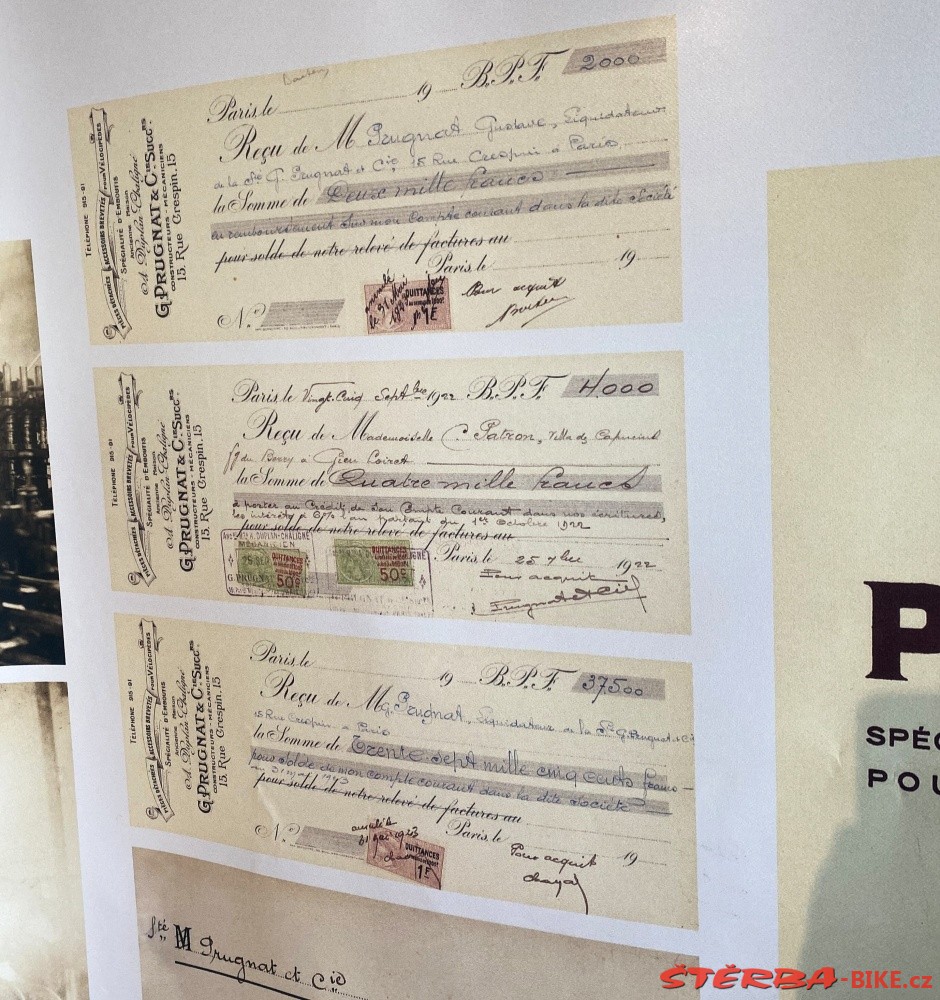 TÉLÉPHONE 915-91
PIÈCES DÉTACHÉES & ACCESSOIRES BREVETÉS POUR VÉLOCIPÈDES
SPÉCIALITÉ D'EMBOUTIS
ANCIENNE MAISON
A. Duplan Chaligné
G. PRUGNAT & Cie SUCCRS
CONSTRUCTEURS-MÉCANICIENS
15, Rue Crespin, 15
Paris, le 19 B.P.F. 2000
Reçu de M Prugnat Gustave, Liquidateur
de la Sté G. Prugnat et Cie, 15 Rue Crespin à Paris,
la Somme de Deux mille francs
en remboursement sur mon Compte courant dans la dite Société
pour solde de notre relevé de factures au
Paris, le 19
No
annulé
le 31 Mai
QUITTANCES
1F
Pour acquit
TÉLÉPHONE 915-91
PIÈCES DÉTACHÉES & ACCESSOIRES BREVETÉS POUR VÉLOCIPÈDES
SPÉCIALITÉ D'EMBOUTIS
ANCIENNE MAISON
A. Duplan Chaligné
G. PRUGNAT & Cie SUCCRS
CONSTRUCTEURS-MÉCANICIENS
15, Rue Crespin, 15
Paris, le Vingt-Cinq Septbre 1922 B.P.F. 4.000
Reçu de Mademoiselle C. Patron, Villa de
du Berry à Gien Loiret
la Somme de Quatre mille francs
à porter au Crédit de son Compte Courant dans nos écritures,
les intérêts à 6% l'an partant du 1er Octobre 1922
pour solde de notre relevé de factures au
DUPLAN-CHALIGNÉ
MÉCANICIEN
G. PRUGNAT
QUITTANCES
50c
QUITTANCES
50c
Paris, le 25 7bre 1922
Pour acquit
Prugnat et Cie
TÉLÉPHONE 915-91
PIÈCES DÉTACHÉES & ACCESSOIRES BREVETÉS POUR VÉLOCIPÈDES
SPÉCIALITÉ D'EMBOUTIS
ANCIENNE MAISON
A. Duplan Chaligné
G. PRUGNAT & Cie SUCCRS
CONSTRUCTEURS-MÉCANICIENS
15, Rue Crespin, 15
Paris, le 19 B.P.F. 37500
Reçu de M G. Prugnat, Liquidateur de la Sté G. Prugnat et Cie
15 Rue Crespin à Paris
la Somme de Trente-sept mille cinq cents francs
pour solde de mon compte courant dans la dite Société
31 mai 1923
pour solde de notre relevé de factures au
Paris, le 19
No
annulé le
31 Mai 1923
QUITTANCES
1F
Pour acquit
Sté M Prugnat et Cie
P
SPÉC
POU
ŠTĚRBA-BIKE.cz